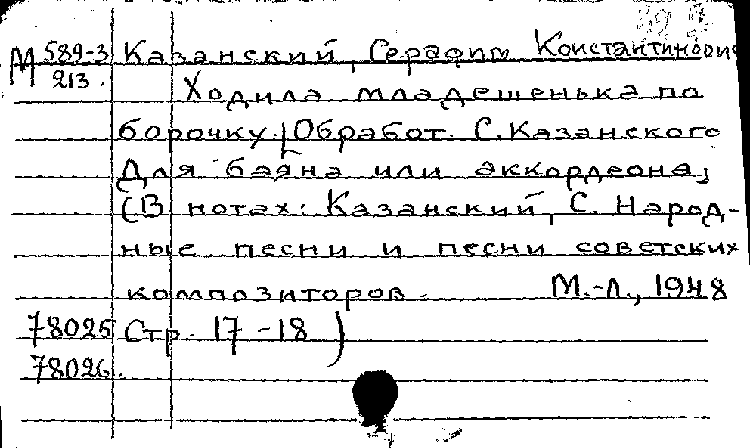 М 589-3 Казанский, Серафим Константинович
213. Ходила младешенька по
борочку. [Обработ. С. Казанского
Для баяна или аккордеона]
(В нотах: Казанский, С. Народ-
ные песни и песни советских
композиторов. М.-Л., 1948
78025 Стр. 17-18)
78026.